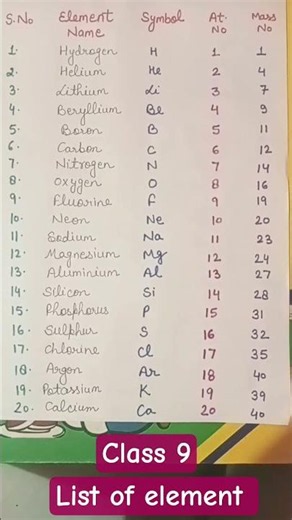 S.No Element Name Symbol At. No Mass No
1. Hydrogen H 1 1
2. Helium He 2 4
3. Lithium Li 3 7
4. Beryllium Be 4 9
5. Boron B 5 11
6. Carbon C 6 12
7. Nitrogen N 7 14
8. Oxygen O 8 16
9. Fluorine F 9 19
10. Neon Ne 10 20
11. Sodium Na 11 23
12. Magnesium Mg 12 24
13. Aluminium Al 13 27
14. Silicon Si 14 28
15. Phosphorus P 15 31
16. Sulphur S 16 32
17. Chlorine Cl 17 35
18. Argon Ar 18 40
19. Potassium K 19 39
20. Calcium Ca 20 40
Class 9
List of element